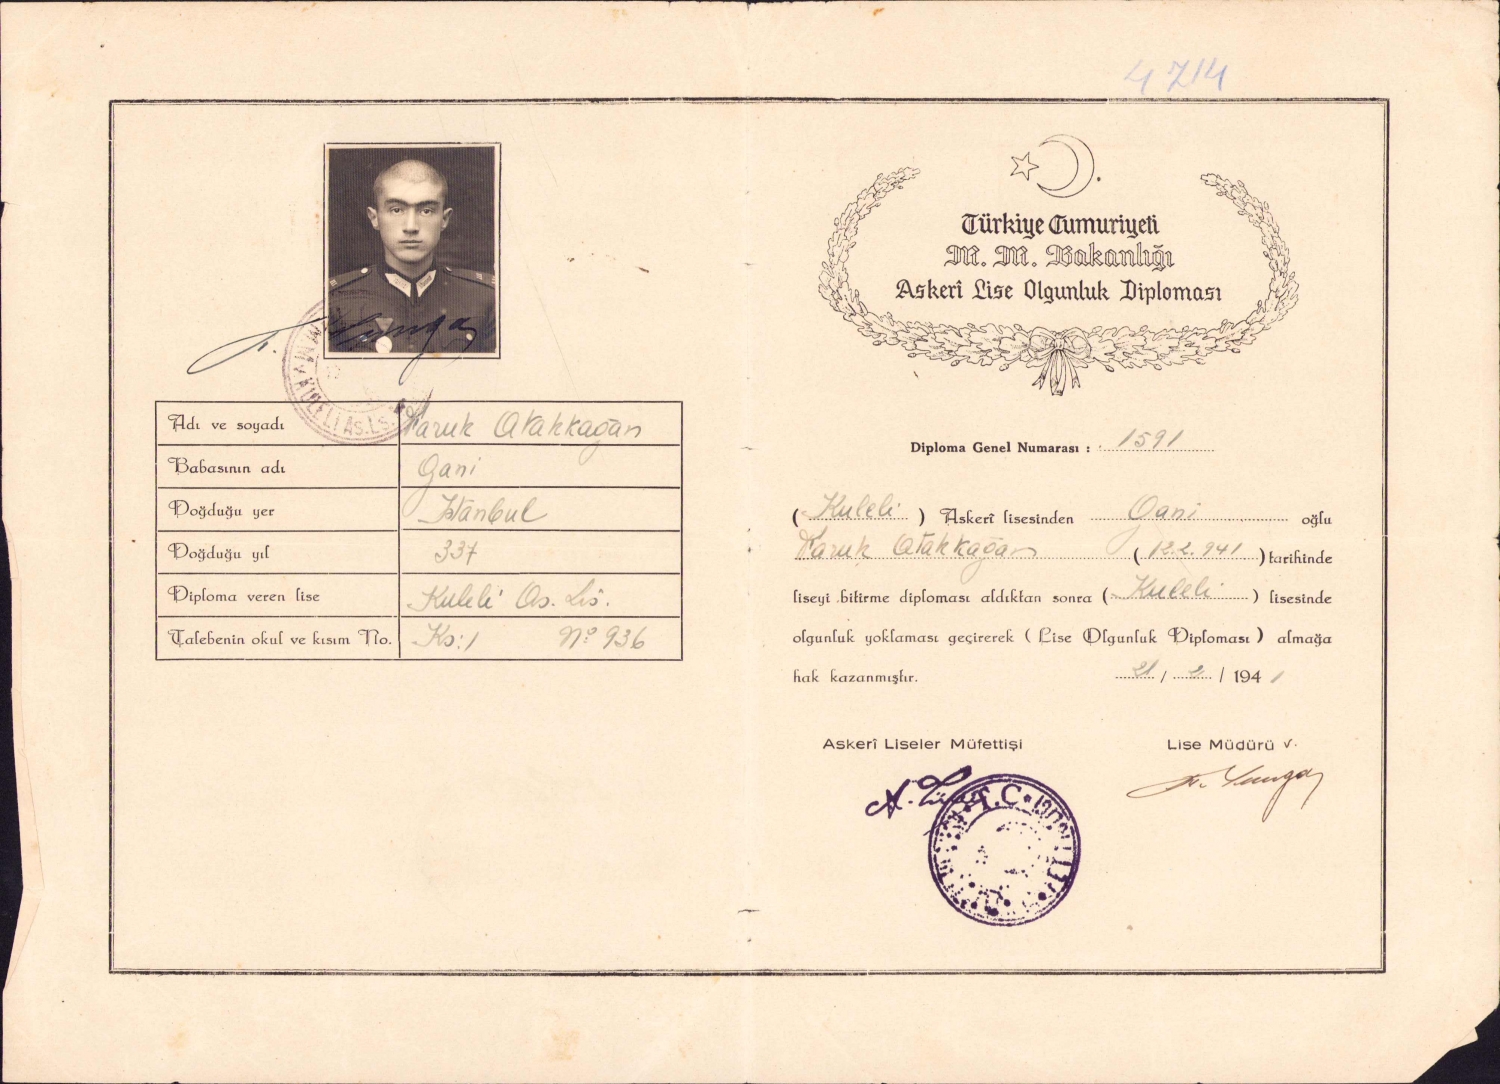 4714
Adı ve soyadı Faruk Atakkağan
Babasının adı Gani
Doğduğu yer İstanbul
Doğduğu yıl 337
Diploma veren lise Kuleli As. Lis.
Talebenin okul ve kısım No. Ks: 1 No 936
KULELİ AS. LS.
Türkiye Cumuriyeti
M. M. Bakanlığı
Askerî Lise Olgunluk Diploması
Diploma Genel Numarası : 1591
( Kuleli ) Askerî lisesinden Gani oğlu
Faruk Atakkağan ( 12.2.941 ) tarihinde
liseyi bitirme diploması aldıktan sonra ( Kuleli ) lisesinde
olgunluk yoklaması geçirerek ( Lise Olgunluk Diploması ) almağa
hak kazanmıştır. 21 / 2 / 1941
Askerî Liseler Müfettişi Lise Müdürü V.
T.C.